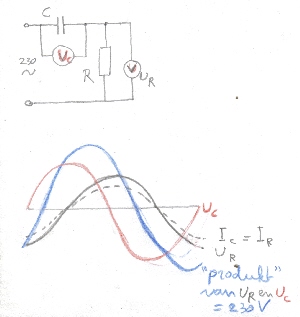 C
Uc
230
~
R
V
UR
Uc
Ic = IR
UR
"produkt"
van UR en Uc
= 230V